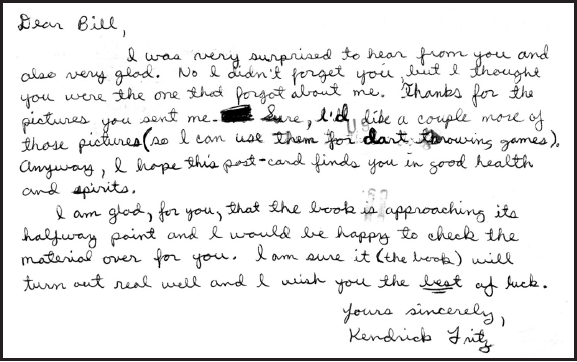 Dear Bill,
I was very surprised to hear from you and
also very glad. No I didn't forget you, but I thought
you were the one that forgot about me. Thanks for the
pictures you sent me. Sure, I'd like a couple more of
those pictures (so I can use them for dart throwing games).
Anyway, I hope this post-card finds you in good health
and spirits.
I am glad, for you, that the book is approaching its
halfway point and I would be happy to check the
material over for you. I am sure it (the book) will
turn out real well and I wish you the best of luck.
Yours sincerely,
Kendrick Fritz